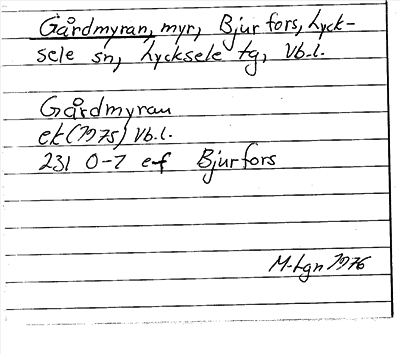 Gårdmyran, myr, Bjurfors, Lyck-
sele sn, Lycksele tg, Vb.l.
Gårdmyran
ek (1975) Vb.l.
231 0-7 e-f Bjurfors
M-Lgn 1976